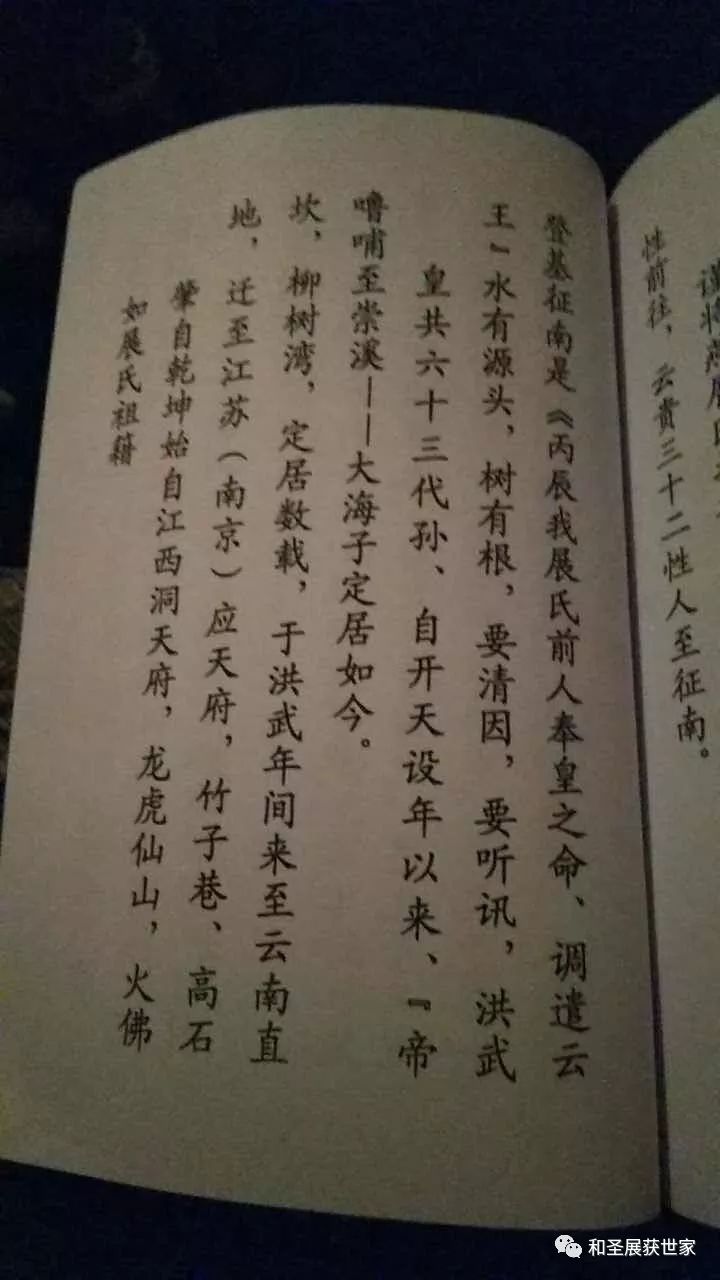 如展氏祖籍
肇自乾坤始自江西洞天府，龙虎仙山，火佛
地，迁至江苏（南京）应天府，竹子巷、高石
坎，柳树湾，定居数载，于洪武年间来至云南直
噜哺至崇溪——大海子定居如今。
皇共六十三代孙、自开天设年以来、『帝
王』水有源头，树有根，要清因，要听讯，洪武
登基征南是《丙辰我展氏前人奉皇之命、调遣云
性前往，云贵三十二性人至征南。
谨将
和圣展获世家